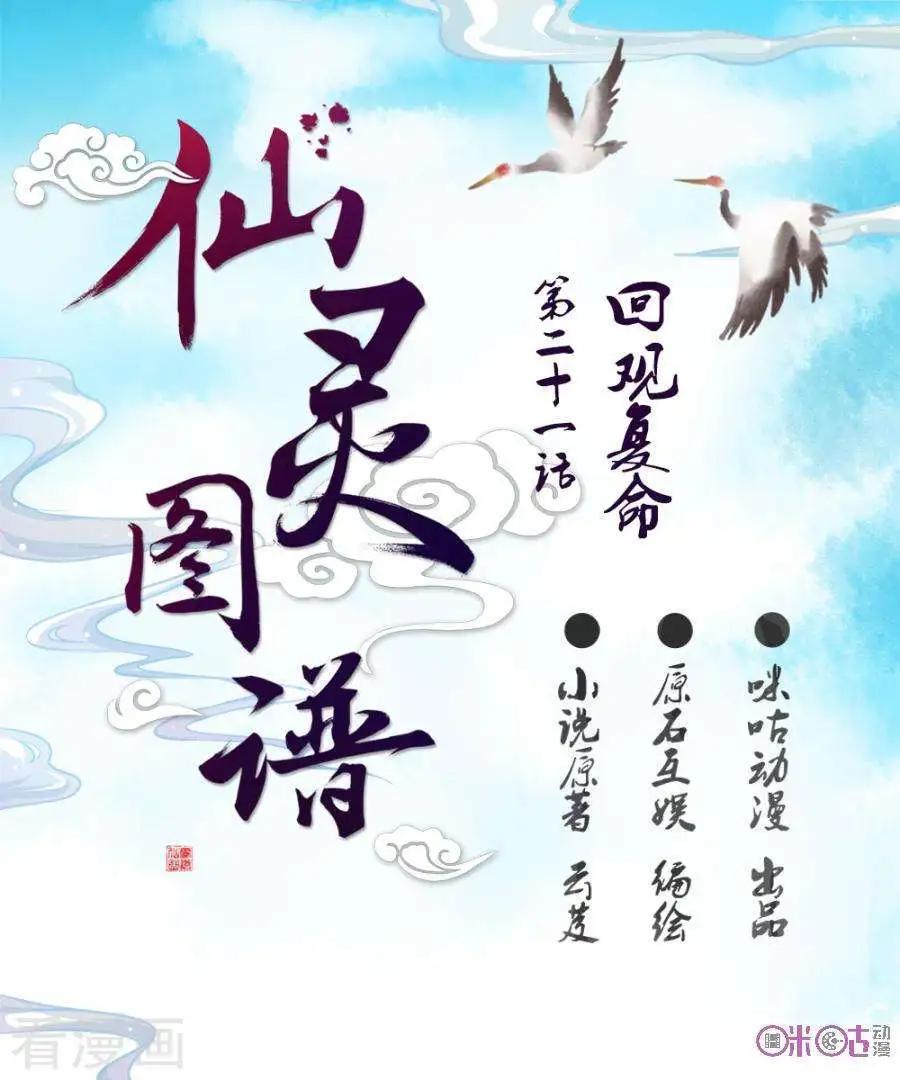 仙灵图谱
回观复命
第二十一话
咪咕动漫 出品
原石互娱 编绘
小说原著 云芨
看漫画
咪咕动漫